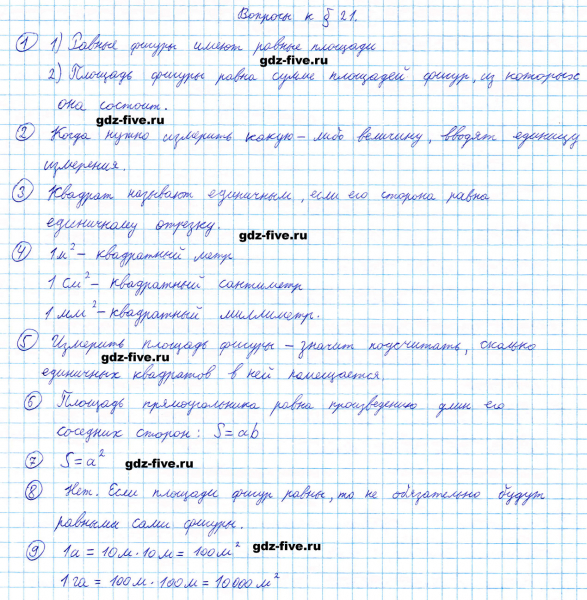 Вопросы к § 21.
① 1) Равные фигуры имеют равные площади
gdz-five.ru
2) Площадь фигуры равна сумме площадей фигур, из которых
она состоит.
gdz-five.ru
② Когда нужно измерить какую-либо величину, вводят единицу
измерения.
③ Квадрат называют единичным, если его сторона равна
единичному отрезку.
gdz-five.ru
④ 1м² – квадратный метр
1 см² – квадратный сантиметр
1 мм² – квадратный миллиметр.
⑤ Измерить площадь фигуры – значит подсчитать, сколько
gdz-five.ru
единичных квадратов в ней помещается.
⑥ Площадь прямоугольника равна произведению длин его
соседних сторон: S = ab
⑦ S = a²
gdz-five.ru
⑧ Нет. Если площади фигур равны, то не обязательно будут
равными сами фигуры.
⑨ 1а = 10м · 10м = 100м²
gdz-five.ru
1га = 100м · 100м = 10000м²